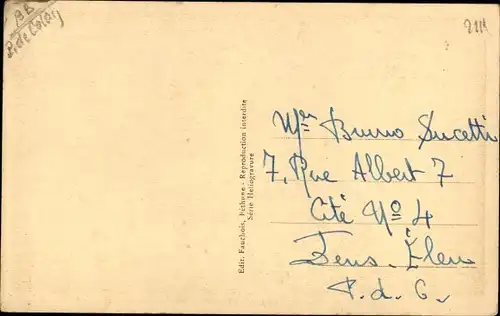 P. de Calais
Edit. Fauchois, Béthune - Reproduction interdite
Série Heliogravure
Mr Bruno Sucetti
7, Rue Albert 7
Cité No 4
Lens.
P. d. C.